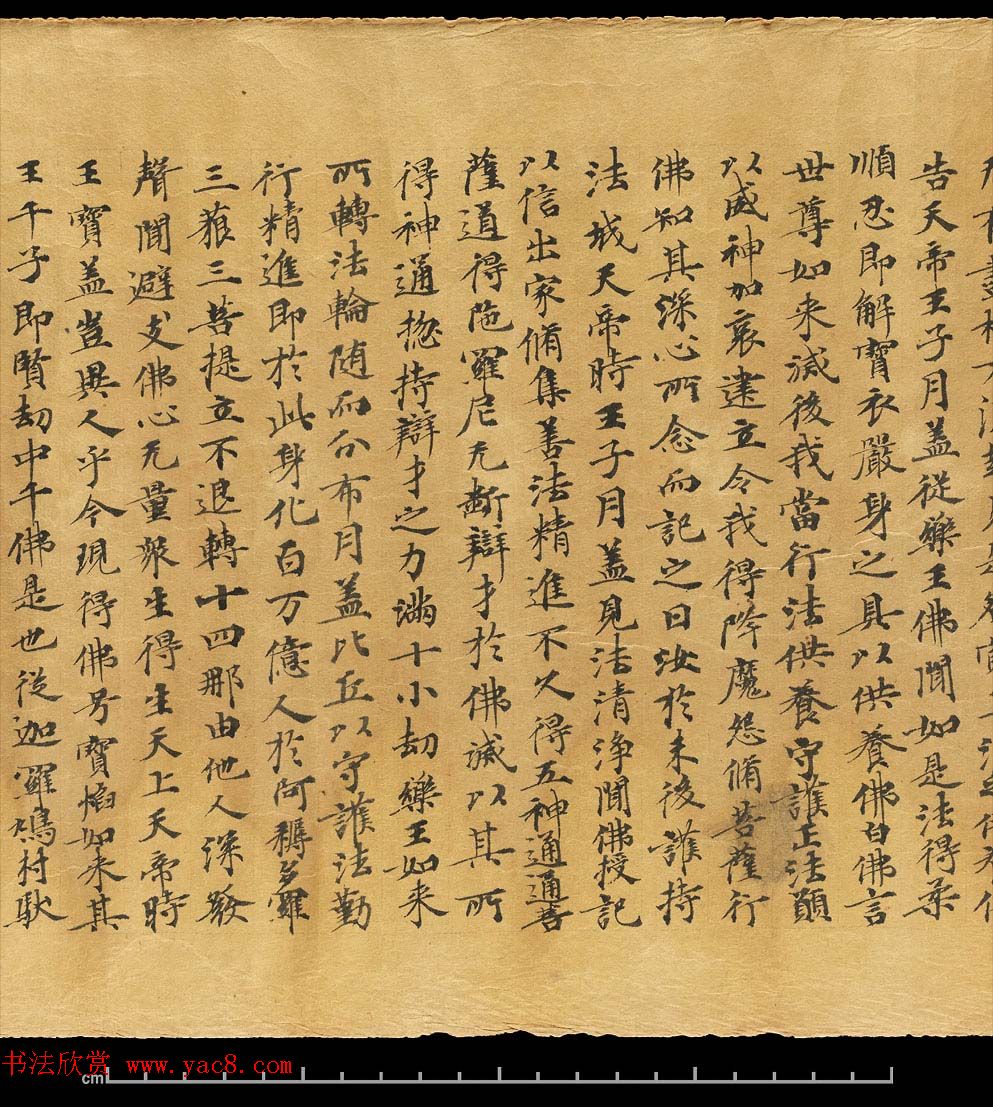 告天帝王子月盖從藥王佛聞如是法得柔
順忍即解寶衣嚴身之具以供養佛白佛言
世尊如来滅後我當行法供養守護正法願
以威神加哀建立令我得降魔怨脩菩薩行
佛知其深心所念而記之曰汝於末後護持
法城天帝時王子月盖見法清淨聞佛授記
以信出家脩集善法精進不久得五神通通菩
薩道得陁羅尼无斷辯才於佛滅以其所
得神通揔持辯才之力滿十小劫藥王如来
所轉法輪随而分布月盖比丘以守護法勤
行精進即於此身化百万億人於阿耨多羅
三藐三菩提立不退轉十四那由他人深發
聲聞避支佛心无量衆生得生天上天帝時
王寶盖豈異人乎今現得佛号寶焰如来其
王千子即賢劫中千佛是也從迦羅鳩村馱
书法欣赏 www.yac8.com
cm